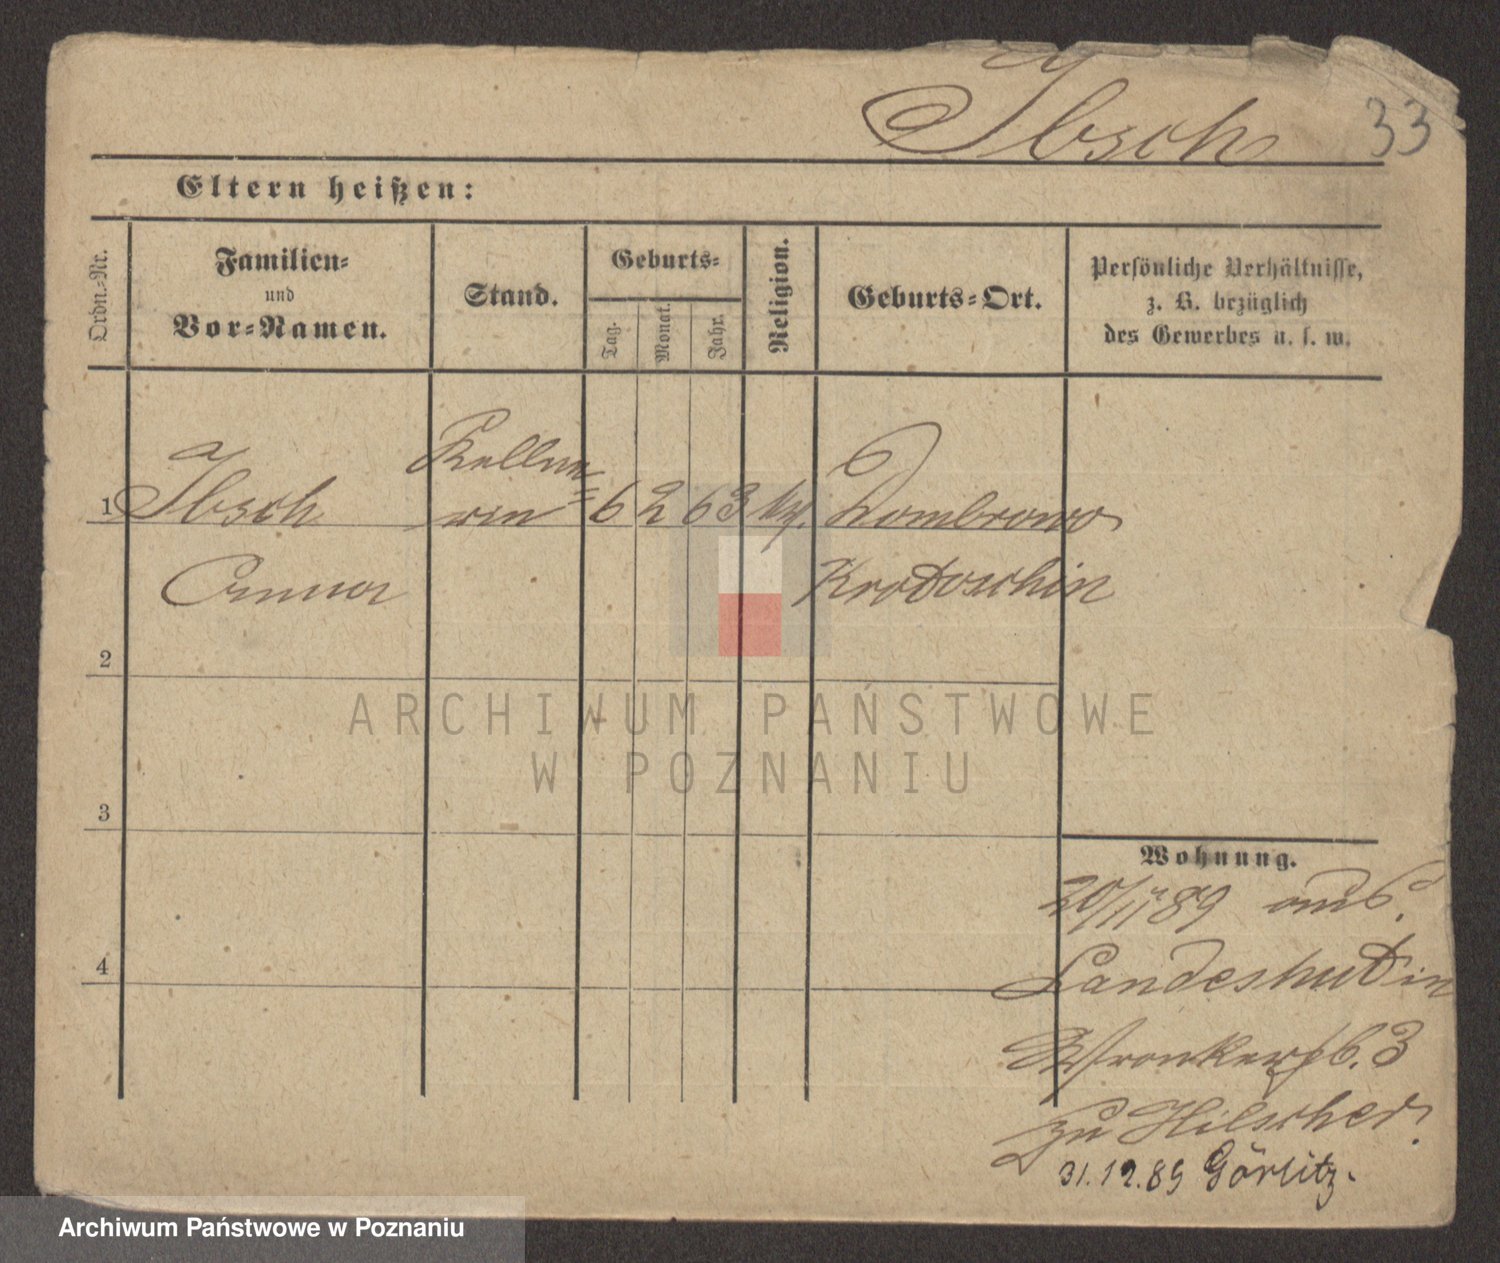 Ibsch 33
Eltern heißen:
Ordn.-Nr.
Familien-
und
Vor-Namen.
Stand.
Geburts-
Tag.
Monat.
Jahr.
Religion.
Geburts-Ort.
Persönliche Verhältnisse,
z. B. bezüglich
des Gewerbes u. s. w.
1 Ibsch Kellne=
rin 6 2 63 Dombrowo
Anna Krotoschin
2
3
4
ARCHIWUM PAŃSTWOWE
W POZNANIU
Wohnung.
20/11 89 aus
Landeshut in
Wronkerstr. 3
zu Hilscher.
31.12.89 Görlitz.
Archiwum Państwowe w Poznaniu